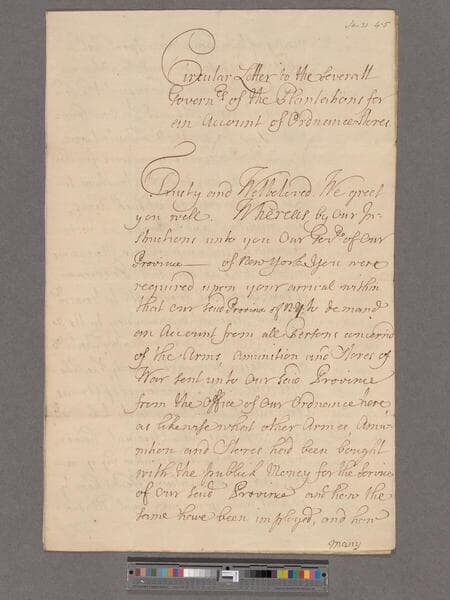 Circular Letter to the Severall
Govern.rs of the Plantations for
an Account of Ordnance Stores.
Trusty and Welbeloved. We greet
you well. Whereas by Our In-
structions unto you Our Gov.r of Our
Province of New York you were
required upon your arrival within
that our said Province of N.Y. to demand
an Account from all Persons concernd
of the Arms, Amunition and Stores of
War sent unto Our said Province
from the Office of Our Ordnance here,
as likewise what other Armes, Amu-
nition and Stores had been bought
with the publick Money for the Service
of Our said Province and how the
same have been imployed, and how
many